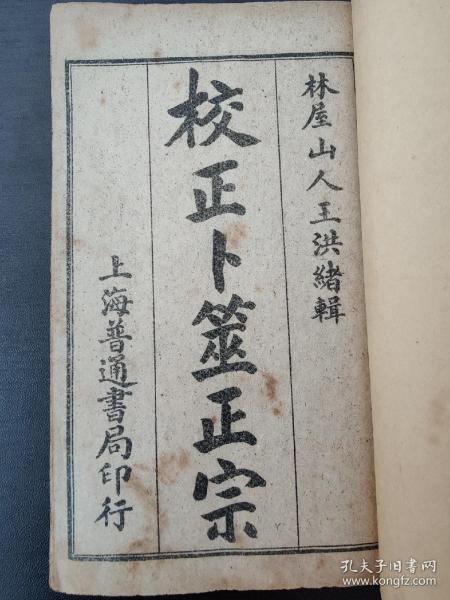 林屋山人王洪緒輯
校正卜筮正宗
上海普通書局印行
孔夫子旧书网
www.kongfz.com